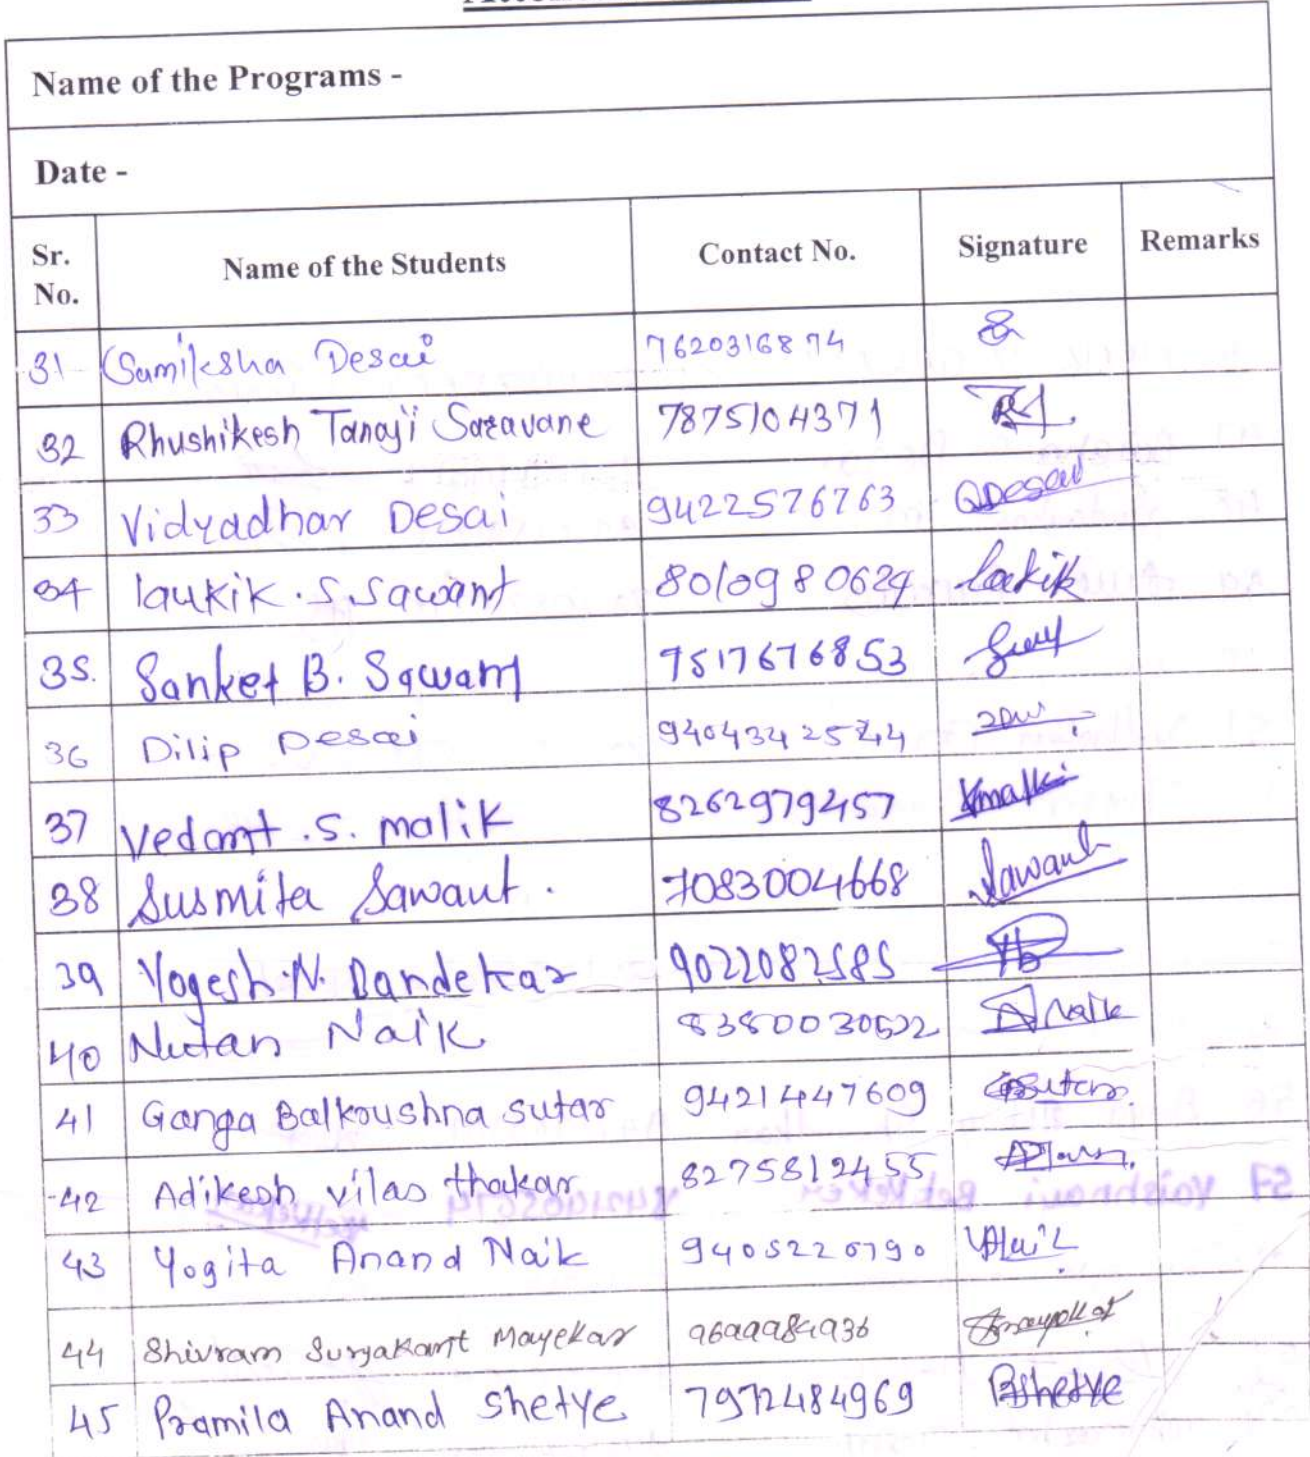 Name of the Programs -
Date -
Sr. No. Name of the Students Contact No. Signature Remarks
31 Samiksha Desai 7620316874
32 Rhushikesh Tanaji Saravane 7875104371
33 Vidyadhar Desai 9422576763 Desai
34 laukik . S. Sawant 8010980624 laukik
35. Sanket B. Sawant 7517676853
36 Dilip Desai
37 Vedant . S. malik 8262979457
38 Susmita Sawant . 7083004668 Sawant
39 Yogesh N. Dandekar 9022082585
40 Nutan Naik Naik
41 Ganga Balkrushna sutar 9421447609
42 Adikesh vilas thakar 8275812455
43 Yogita Anand Naik
44 Shivram Suryakant Mayekar 9699984936
45 Pramila Anand Shetye 7972484969 PShetye